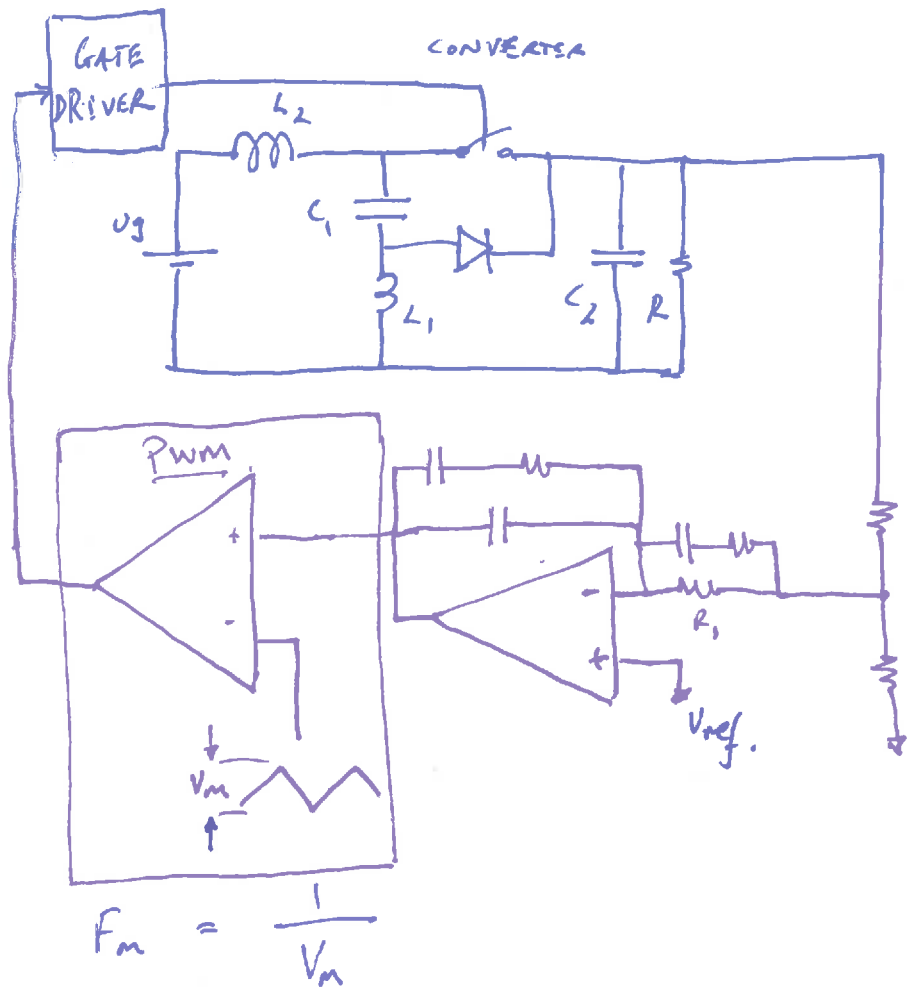 GATE
DRIVER
CONVERTER
L2
C1
vg
L1
C2
R
PWM
+
-
-
+
R1
Vref.
Vm
Fm = 1
Vm